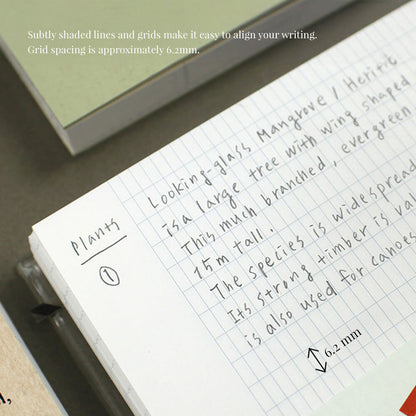 Subtly shaded lines and grids make it easy to align your writing.
Grid spacing is approximately 6.2mm.
Plants
①
Looking-glass Mangrove / Heritic
is a large tree with wing shaped
This much branched, evergreen
15m tall.
The species is widespread
Its strong timber is val
is also used for canoes
6.2 mm